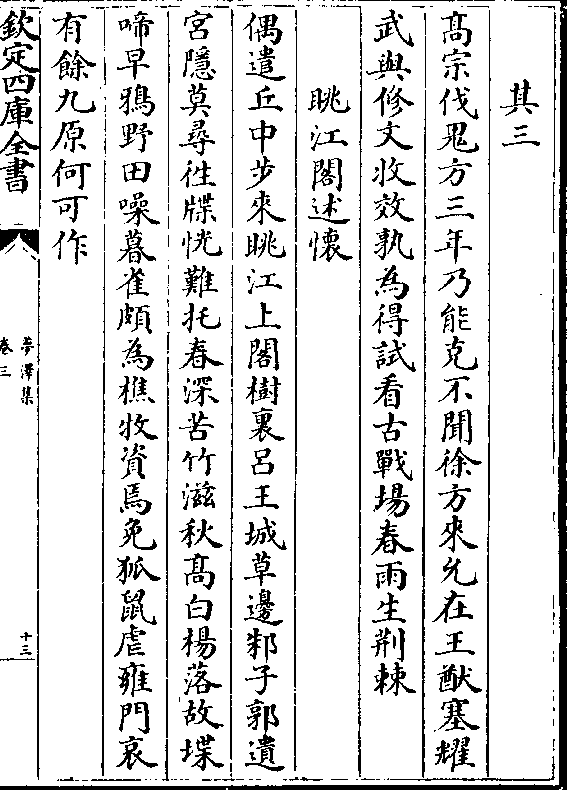 其三
髙宗伐鬼方三年乃能克不聞徐方來允在王猷塞耀
武與修文收效孰為得試看古戰場春雨生荆棘
眺江閣述懷
偶遣丘中步來眺江上閣樹裏呂王城草邊邾子郭遺
宮隱莫尋徃牒恍難托春深苦竹滋秋髙白楊落故堞
啼早鴉野田噪暮雀頗為樵牧資焉免狐鼠虐雍門哀
有餘九原何可作
欽定四庫全書
夢澤集
卷三
十三